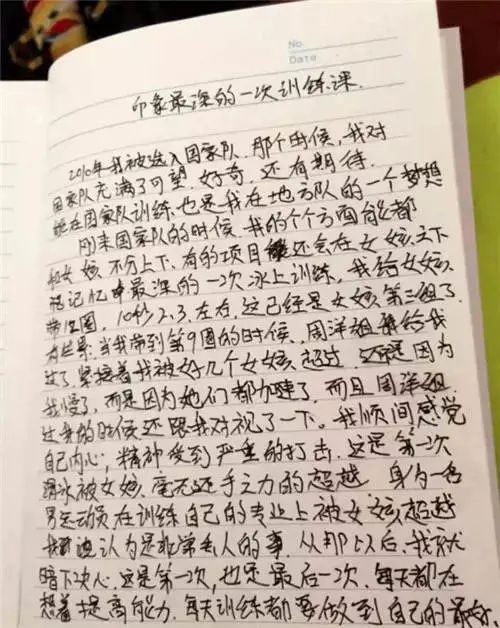 No.
Date
印象最深的一次训练课.
2010年我被选入国家队.那个时候,我对
国家队充满了可望.好奇.还有期待.
能在国家队训练也是我在地方队的一个梦想
刚来国家队的时候.我的个个方面能都
和女孩不分上下、有的项目还会在女孩之下
记忆中最深的一次冰上训练,我给女孩
带12圈,10秒2、3.左右,这已经是女孩第三组了
当我带到第9圈的时候,周洋姐给我
过了.紧接着我被好几个女孩超过.因为
我慢了,而是因为她们都加速了,而且周洋姐
过我的时候还跟我对视了一下.我顺间感觉
自己内心,精神受到严重的打击.这是第一次
滑冰被女孩毫无还手之力的超越 身为一名
男运动员在训练自己的专业上被女孩超越
我认为是非常丢人的事.从那以后.我就
暗下决心.这是第一次,也是最后一次.每天都在
想着提高能力.每天训练都要做到自己的最